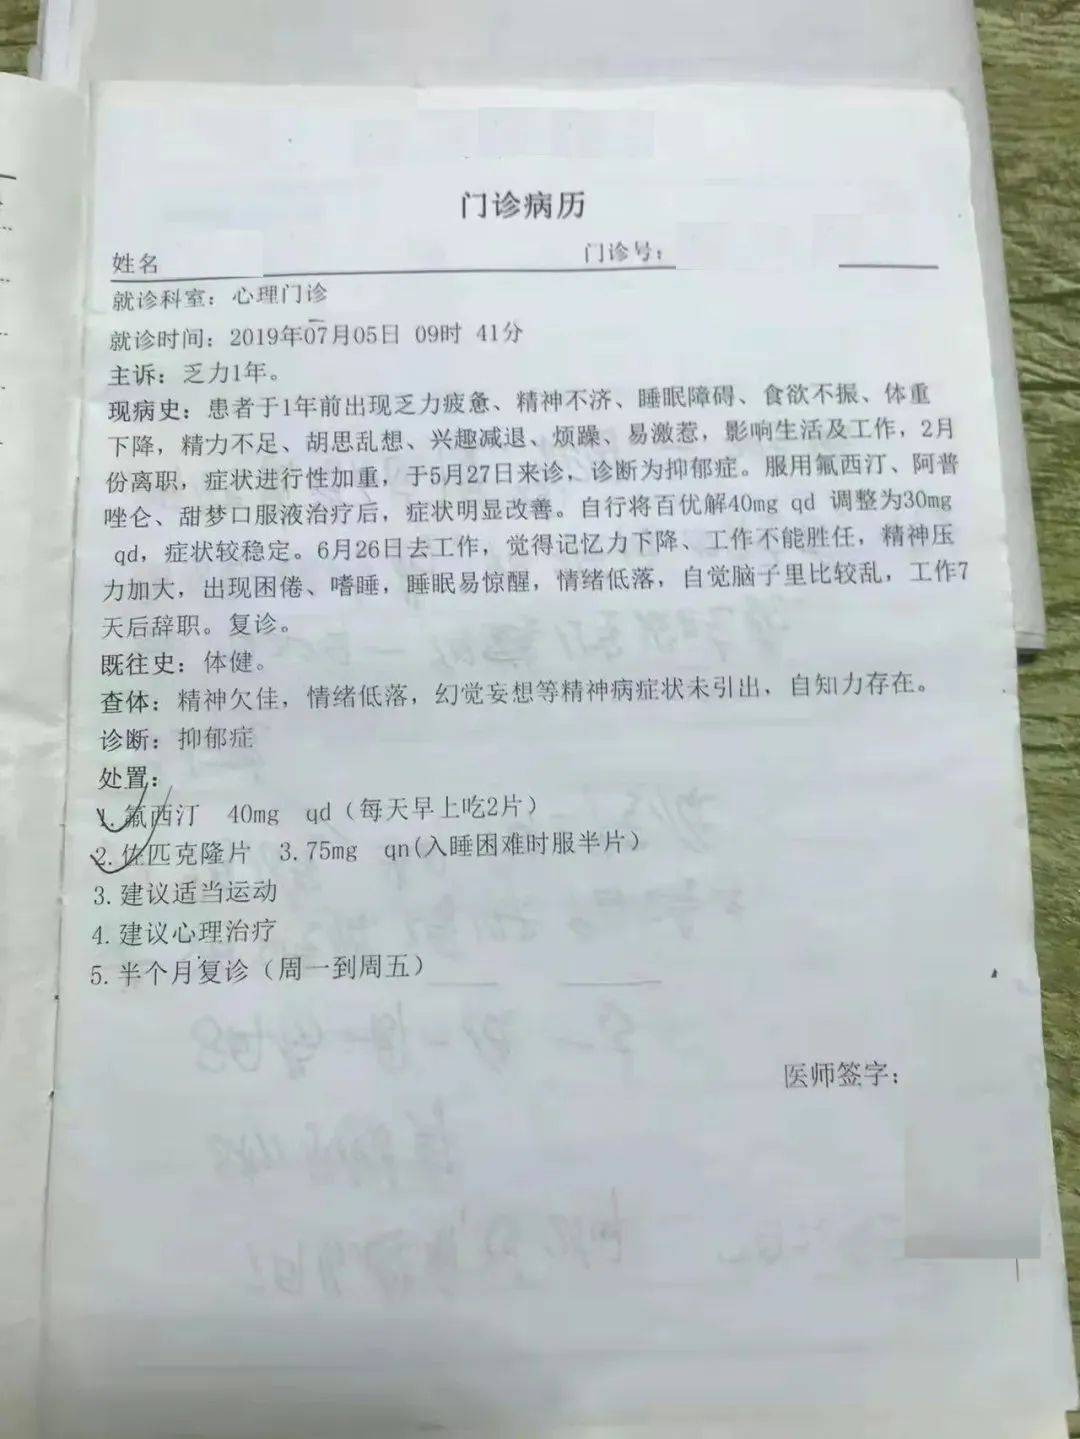 门诊病历
姓名 门诊号：
就诊科室：心理门诊
就诊时间：2019年07月05日 09时 41分
主诉：乏力1年。
现病史：患者于1年前出现乏力疲惫、精神不济、睡眠障碍、食欲不振、体重
下降，精力不足、胡思乱想、兴趣减退、烦躁、易激惹，影响生活及工作，2月
份离职，症状进行性加重，于5月27日来诊，诊断为抑郁症。服用氟西汀、阿普
唑仑、甜梦口服液治疗后，症状明显改善。自行将百优解40mg qd 调整为30mg
qd，症状较稳定。6月26日去工作，觉得记忆力下降、工作不能胜任，精神压
力加大，出现困倦、嗜睡，睡眠易惊醒，情绪低落，自觉脑子里比较乱，工作7
天后辞职。复诊。
既往史：体健。
查体：精神欠佳，情绪低落，幻觉妄想等精神病症状未引出，自知力存在。
诊断：抑郁症
处置：
1.氟西汀 40mg qd（每天早上吃2片）
2.佐匹克隆片 3.75mg qn(入睡困难时服半片）
3.建议适当运动
4.建议心理治疗
5.半个月复诊（周一到周五）
医师签字：